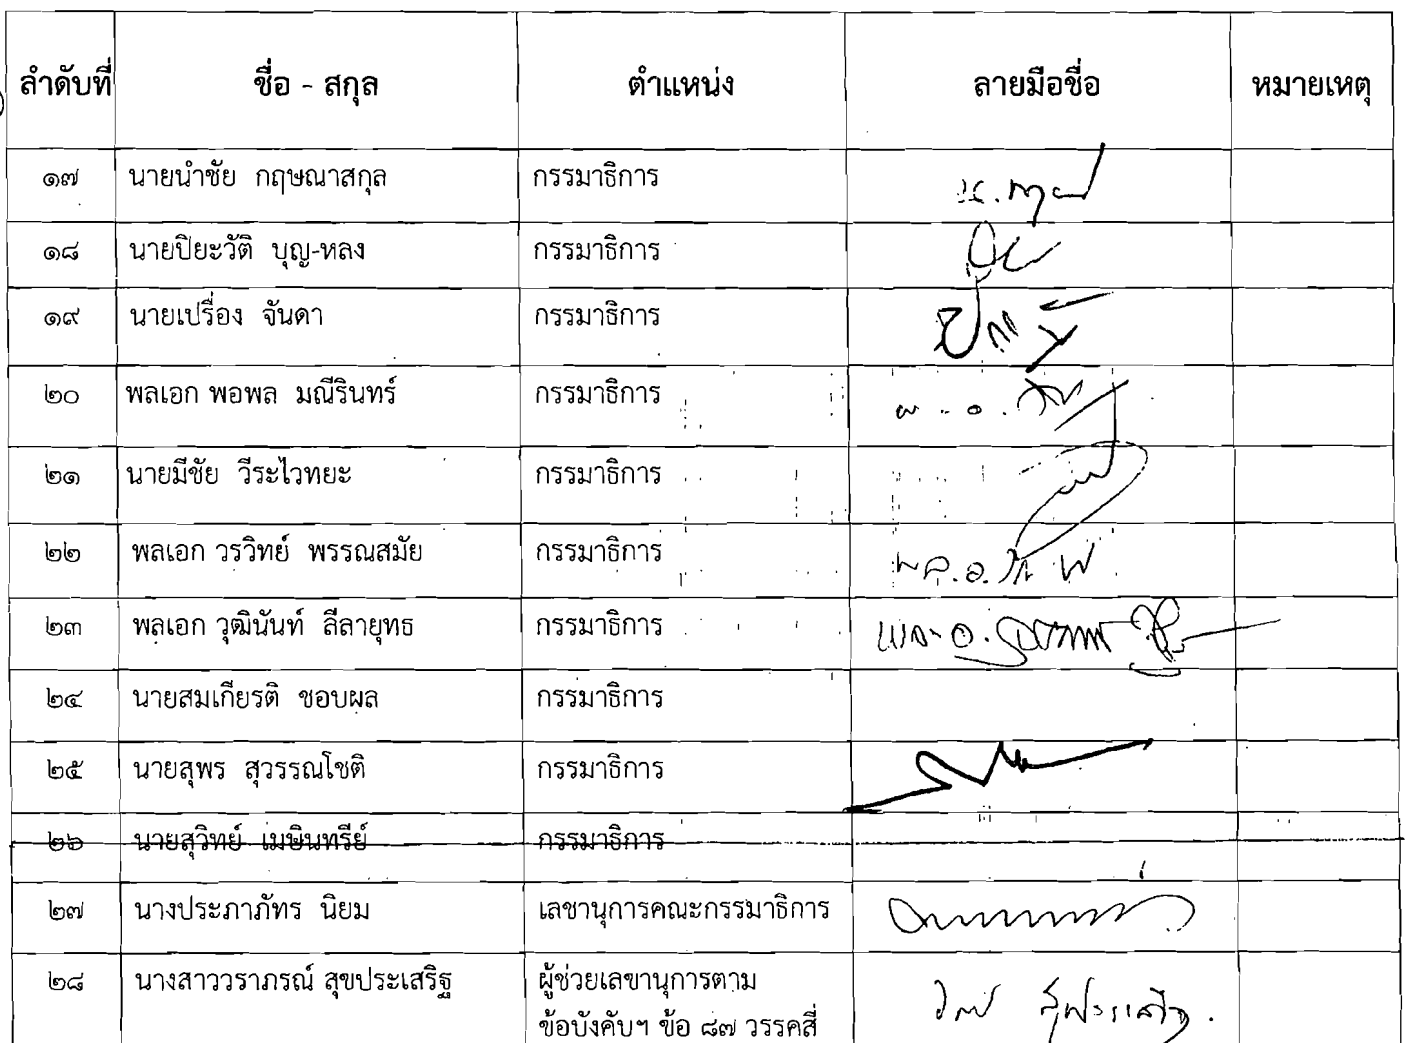 ลำดับที่ ชื่อ - สกุล ตำแหน่ง ลายมือชื่อ หมายเหตุ
๑๗ นายนำชัย กฤษณาสกุล กรรมาธิการ
๑๘ นายปิยะวัติ บุญ-หลง กรรมาธิการ
๑๙ นายเปรื่อง จันดา กรรมาธิการ
๒๐ พลเอก พอพล มณีรินทร์ กรรมาธิการ
๒๑ นายมีชัย วีระไวทยะ กรรมาธิการ
๒๒ พลเอก วรวิทย์ พรรณสมัย กรรมาธิการ
๒๓ พลเอก วุฒินันท์ ลีลายุทธ กรรมาธิการ
๒๔ นายสมเกียรติ ชอบผล กรรมาธิการ
๒๕ นายสุพร สุวรรณโชติ กรรมาธิการ
๒๖ นายสุวิทย์ เมษินทรีย์ กรรมาธิการ
๒๗ นางประภาภัทร นิยม เลขานุการคณะกรรมาธิการ
๒๘ นางสาววราภรณ์ สุขประเสริฐ ผู้ช่วยเลขานุการตาม
ข้อบังคับฯ ข้อ ๘๗ วรรคสี่